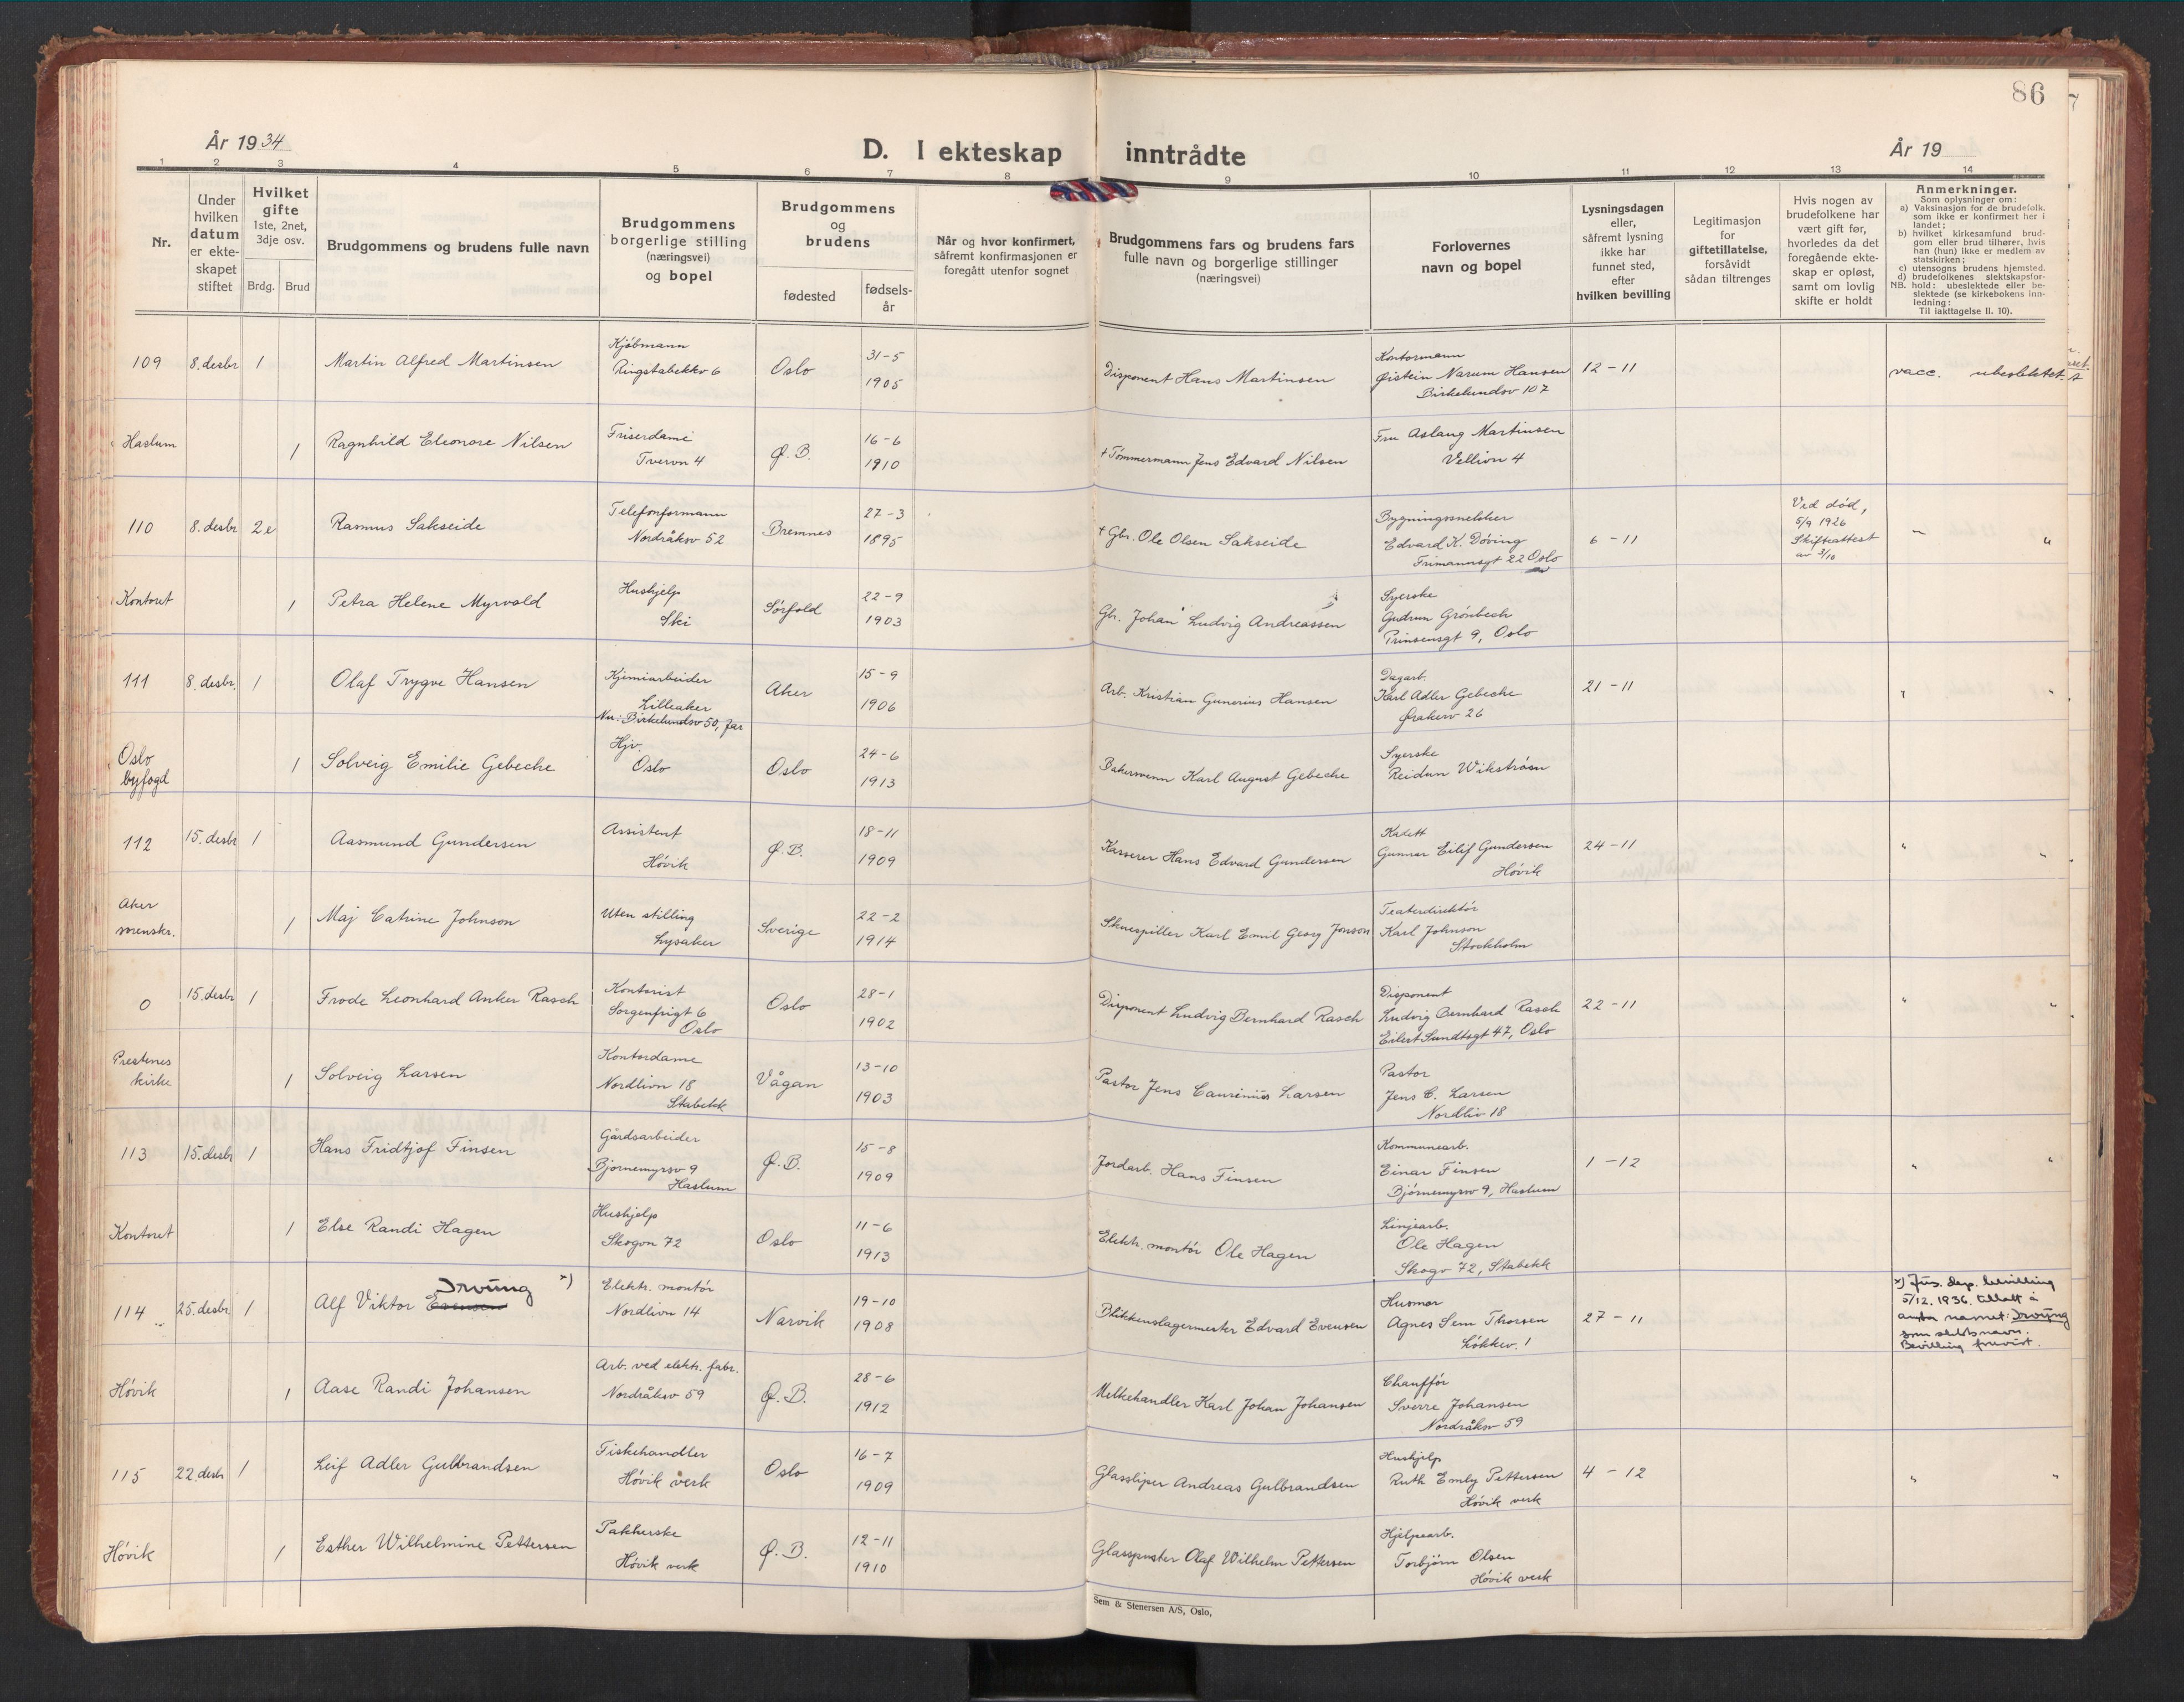 86
År 1934
D. I ekteskap inntrådte
År 19
1 2 3 4 5 6 7 8 9 10 11 12 13 14
Nr.
Under hvilken datum er ekteskapet stiftet
Hvilket gifte
1ste, 2net, 3dje osv.
Brdg. Brud
Brudgommens og brudens fulle navn
Brudgommens borgerlige stilling (næringsvei) og bopel
Brudgommens og brudens
fødested
fødsels-år
Når og hvor konfirmert, såfremt konfirmasjonen er foregått utenfor sognet
Brudgommens fars og brudens fars fulle navn og borgerlige stillinger (næringsvei)
Forlovernes navn og bopel
Lysningsdagen eller, såfremt lysning ikke har funnet sted, efter hvilken bevilling
Legitimasjon for giftetillatelse, forsåvidt sådan tiltrenges
Hvis nogen av brudefolkene har vært gift før, hvorledes da det foregående ekteskap er opløst, samt om lovlig skifte er holdt
Anmerkninger.
Som oplysninger om:
a) Vaksinasjon for de brudefolk, som ikke er konfirmert her i landet;
b) hvilket kirkesamfund brudgom eller brud tilhører, hvis han (hun) ikke er medlem av statskirken;
c) utensogns brudens hjemsted.
d) brudefolkenes slektskapsforhold: ubeslektede eller beslektede (se kirkebokens innledning:
NB. Til iakttagelse II. 10).
109 8. desbr 1 Martin Alfred Martinsen
Kjøbmann
Ringstabekkv 6
Oslo
31-5
1905
Disponent Hans Martinsen
Kontormann
Øistein Narum Hansen
Birkelundsv 107
12-11
vacc. ubeslektet
Haslum 1 Ragnhild Eleonore Nilsen
Friserdame
Tverrvn 4
Ø.B.
16-6
1910
+ Tømmermann Jens Edvard Nilsen
Fru Aslaug Martinsen
Vellivn 4
110 8. desbr 2e Rasmus Sakseide
Telefonformann
Nordråksv 52
Bremnes
27-3
1895
+ Gbr. Ole Olsen Sakseide
Bygningssnekker
Edvard K. Døving
Frimannsgt 22 Oslo
6-11
Ved død,
5/9 1926
Skifteattest
av 3/10
— "
Kontoret 1 Petra Helene Myrvold
Hushjelp
Ski
Sørfold
22-9
1903
Gbr. Johan Ludvig Andreassen
Syerske
Gudrun Grönbech
Prinsensgt 9, Oslo
111 8. desbr. 1 Olaf Trygve Hansen
Kjemiarbeider
Lilleaker
Nu: Birkelundsv 50, Jar
Aker
15-9
1906
Arb. Kristian Gunerius Hansen
Dagarb.
Karl Adler Gebeche
Ørakerv 26
21-11
" "
Oslo byfogd 1 Solveig Emilie Gebeche
Hjv.
Oslo
Oslo
24-6
1913
Bakersvenn Karl August Gebeche
Syerske
Reidun Wikstrøm
112 15. desbr 1 Aasmund Gundersen
Assistent
Høvik
Ø.B.
18-11
1909
Kasserer Hans Edvard Gundersen
Kadett
Gunnar Eilif Gundersen
Høvik
24-11
" "
Aker sorenskr. 1 Maj Catrine Johnson
Uten stilling
Lysaker
Sverige
22-2
1914
Skuespiller Karl Emil Georg Jonson
Teaterdirektör
Karl Johnson
Stockholm
0 15. desbr 1 Frode Leonhard Anker Rasch
Kontorist
Sorgenfrigt 6
Oslo
Oslo
28-1
1902
Disponent Ludvig Bernhard Rasch
Disponent
Ludvig Bernhard Rasch
Eilert Sundtsgt 47, Oslo
22-11
" "
Prestenes kirke 1 Solveig Larsen
Kontordame
Nordlivn 18
Stabekk
Vågan
13-10
1903
Pastor Jens Laurenius Larsen
Pastor
Jens C. Larsen
Nordliv 18
113 15. desbr 1 Hans Fridtjof Finsen
Gårdsarbeider
Bjørnemyrsv 9
Haslum
Ø.B.
15-8
1909
Jordarb. Hans Finsen
Kommunearb.
Einar Finsen
Bjørnemyrsv 9, Haslum
1-12
" "
Kontoret 1 Else Randi Hagen
Hushjelp
Skogvn 72
Oslo
11-6
1913
Elektr. montör Ole Hagen
Linjearb.
Ole Hagen
Skogv 72, Stabekk
114 25. desbr. 1 Alf Viktor Evensen Irvüng x)
Elektr. montör
Nordlivn 14
Narvik
19-10
1908
Blikkenslagermester Edvard Evensen
Husmor
Agnes Sem Thorsen
Løkkev. 1
27-11
x) Jus. dep. bevilling
5/12. 1936. tillatt å
anta navnet: Irvüng
som slektsnavn.
Bevilling forevist.
Høvik 1 Aase Randi Johansen
Arb. ved elektr. fabr.
Nordråksv 59
Ø.B.
28-6
1912
Melkehandler Karl Johan Johansen
Chauffør
Sverre Johansen
Nordråksv 59
115 22. desbr 1 Leif Adler Gulbrandsen
Fiskehandler
Høvik verk
Oslo
16-7
1909
Glassliper Andreas Gulbrandsen
Hushjelp
Ruth Emly Pettersen
Høvik verk
4-12
" "
Høvik 1 Esther Wilhelmine Pettersen
Pakkerske
Høvik verk
Ø.B.
12-11
1910
Glasspuster Olaf Wilhelm Pettersen
Hjelpearb.
Torbjörn Olsen
Høvik verk
Sem & Stenersen A/S, Oslo,